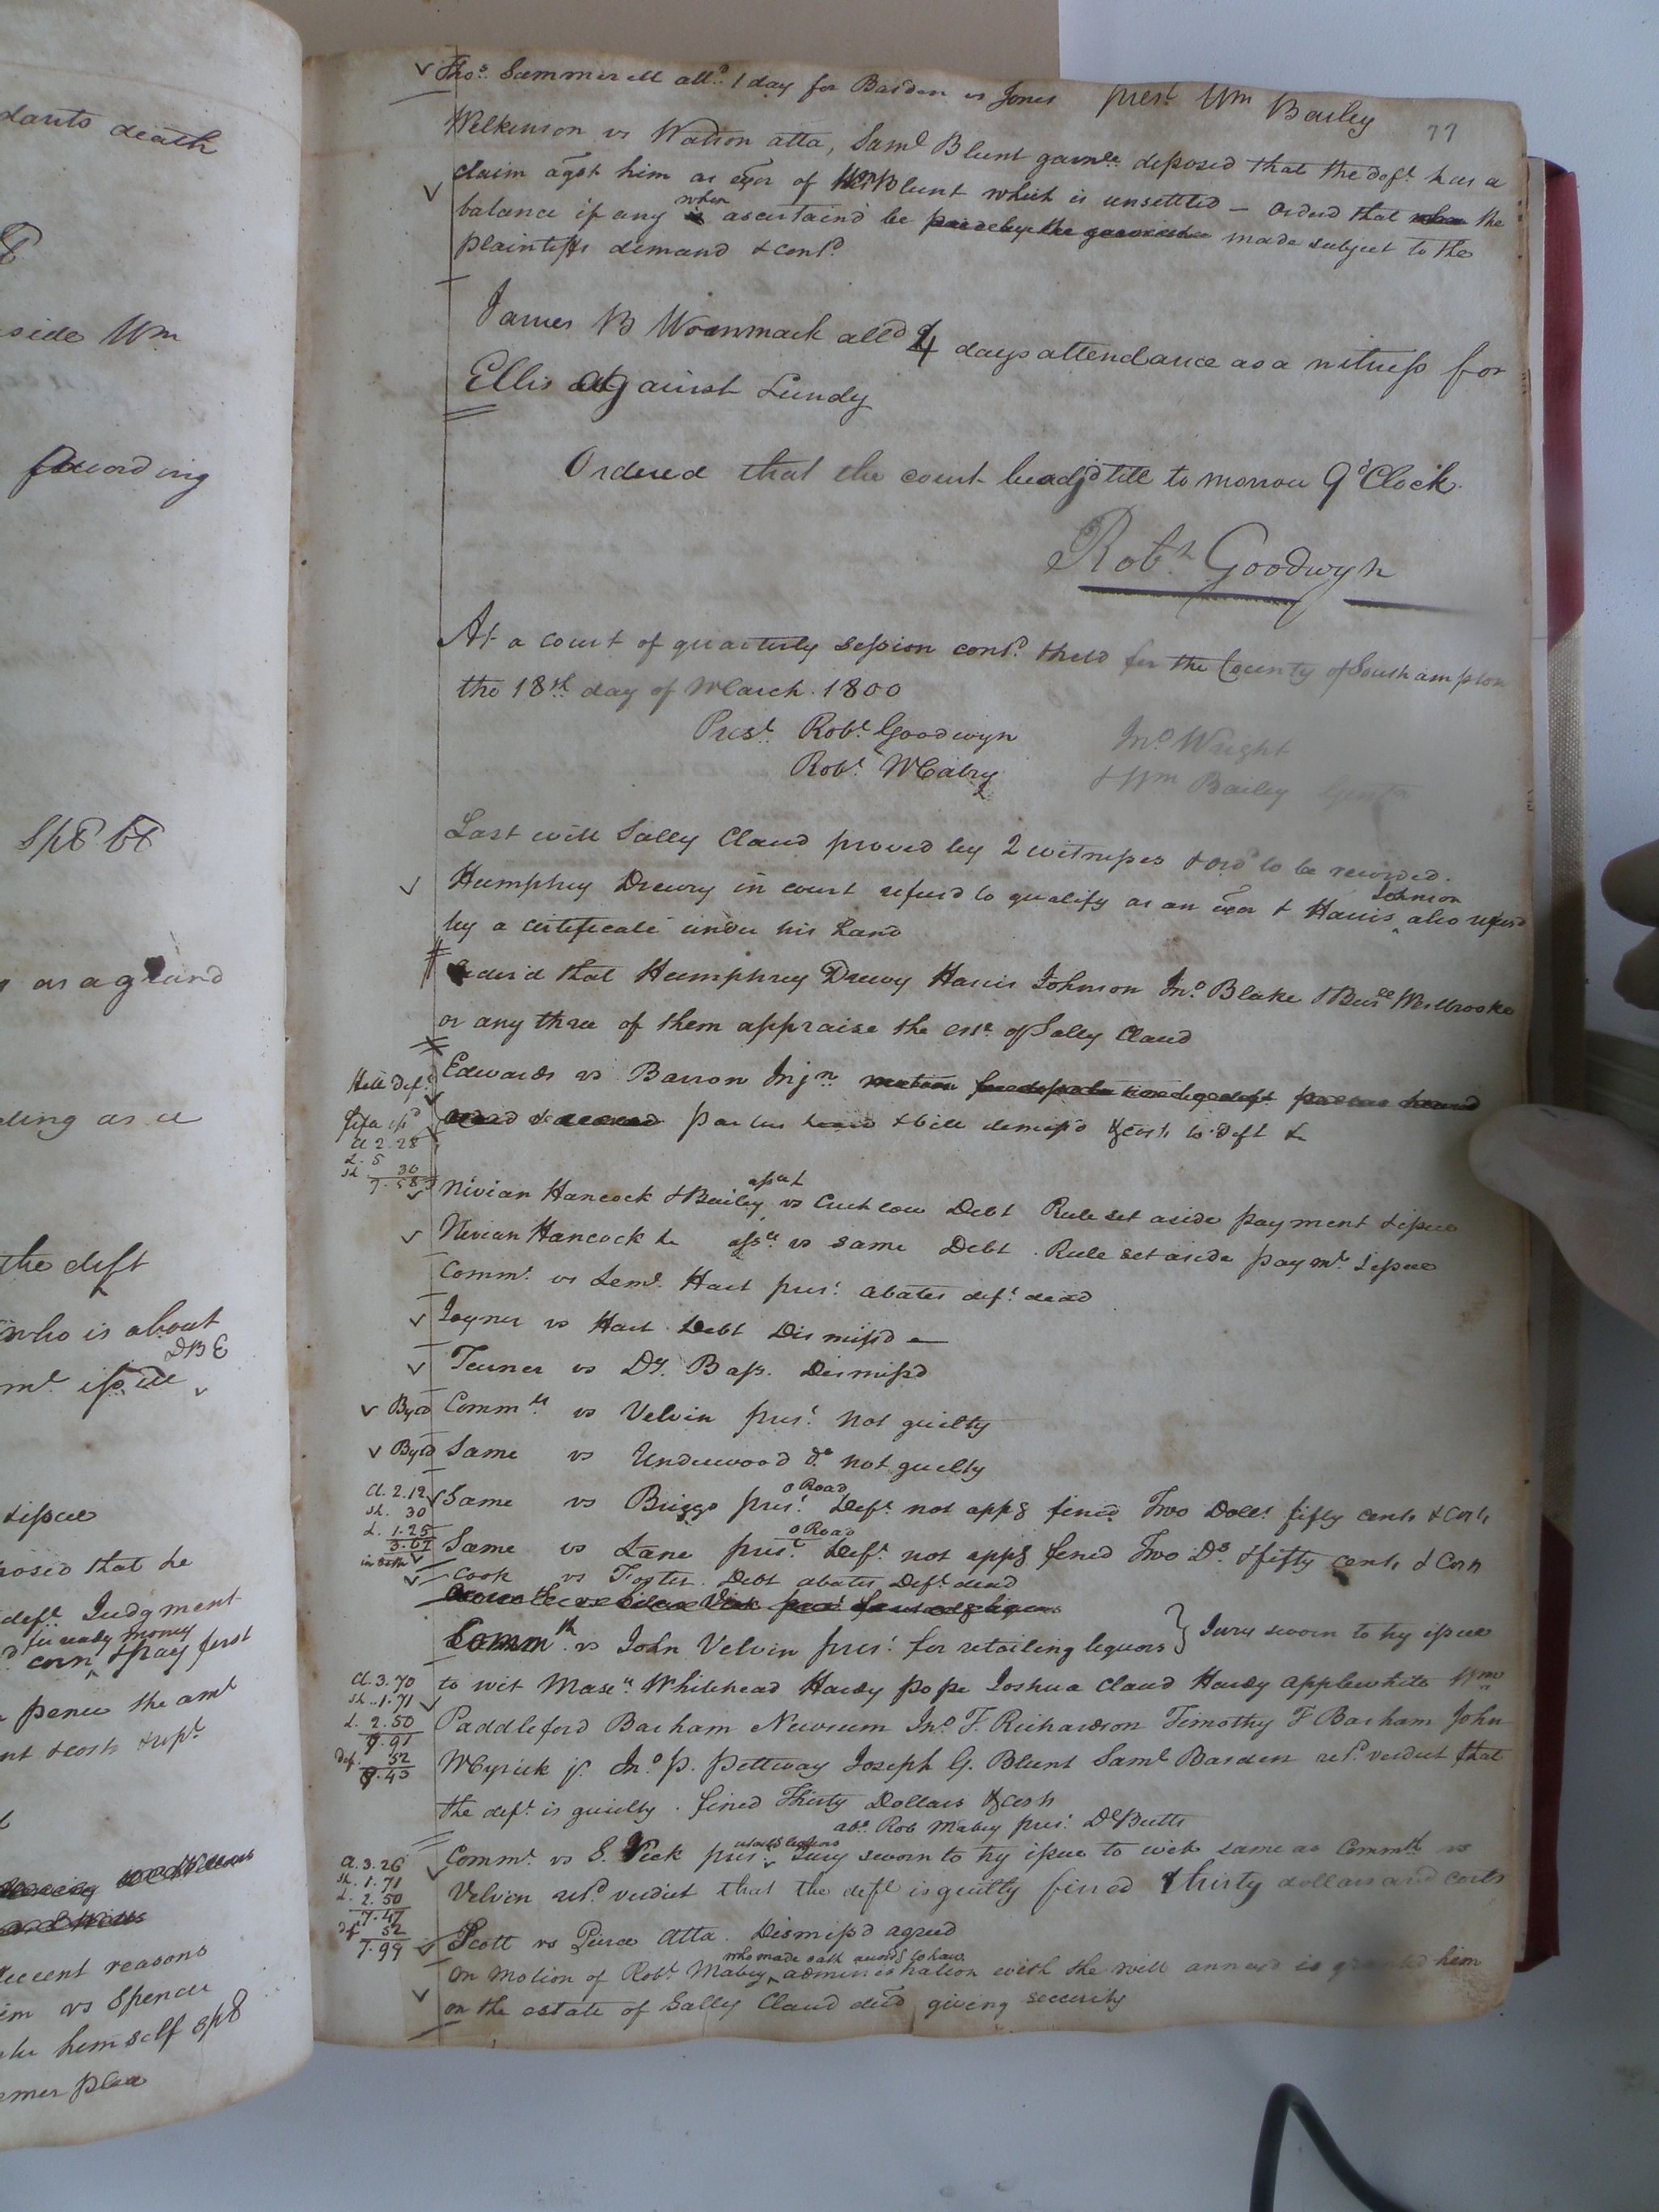 dants death
side Wm
according
Spl bl
as a grand
ding as a
the deft
who is about
DBE
mt issue
& issue
posed that he
deft Judgment
for ready money
corn & pay first
pence the amt
nt & costs & rept
ficcent reasons
im vs Spence
himself spl
mer plea
Thos. Summerell alld. 1 day for Barden vs Jones prest. Wm Bailey
77
Wilkinson vs Watson atta, Saml Blunt garnee. deposed that the deft. has a
claim agst him as exor of Wm Blunt which is unsettled — Orderd that when the
balance if any when is ascertaind be paid by the garnishee made subject to the
plaintiffs demand & contd.
James B Woammack alld 4 days attendance as a witness for
Ellis against Lundy
Ordered that the court be adjd till to morrow 9 oClock.
Robt. Goodwyn
At a court of quarterly session contd. & held for the County of Southampton
the 18th day of March. 1800
Prest. Robt. Goodwyn Jno. Wright
Robt. Mabry & Wm Bailey Gents
Last will Sally Claud proved by 2 witnesses & ord to be recorded.
Humphrey Drewry in court refusd to qualify as an exor & Harris Johnson also refusd
by a certificate under his hand
Orderd that Humphrey Drewry Harris Johnson Jno. Blake & Westbrooke
or any three of them appraise the este. of Sally Claud
Edwards vs Barron Injn. motion
parties heard & bill dismissd & costs to deft &
Hill Deft.
fifa isd
Cl 2.28
L. 5
Sh 30
7.58
Nivian Hancock & Bailey vs Cutchlow Debt Rule set aside payment & issue
Nivian Hancock & assee vs same Debt. Rule set aside paymt. & issue
Commt. vs Leml. Hart prest. abates deft. dead
Joyner vs Hart Debt Dismissd
Turner vs Dr. Bass. Dismissd
Byrd Commth. vs Velvin prest. not guilty
Byrd Same vs Underwood do. not guilty
Cl. 2.12 Same vs Briggs prest. o Road Deft. not appg fined Two Dolls fifty cents & Costs
Sh. 30
L. 1.25
3.67
Same vs Lane prest. o Road Deft. not appg fined Two Ds. & fifty cents & Costs
in both
Cook vs Foster. Debt abates Deft dead
Commth. vs John Velvin prest. for retailing liquors } Jury sworn to try issue
Cl. 3.70 to wit Masen. Whitehead Hardy pope Joshua Claud Hardy Applewhite Wm
Sh. 1.71
L. 2.50 Paddleford Barham Newsum Jno. T. Richardson Timothy F Barham John
Myrick jr. Jno. P. Pettway Joseph G. Blunt Saml Barden retd. verdict that
the deft. is guilty. fined Thirty Dollars & costs
abs. Rob Mabry prest. DeButts
Cl. 3.26 Commt. vs S. Vick prest. Jury sworn to try issue to wit same as Commth vs
Sh. 1.71
L. 2.50 Velvin retd. verdict that the deft is guilty fined thirty dollars and costs
7.47
52
7.99
Scott vs Peirce Atta. Dismissd agreed
On motion of Robt. Mabry who made oath accordg to law administration with the will annexed is granted him
on the estate of Sally Claud decd giving security